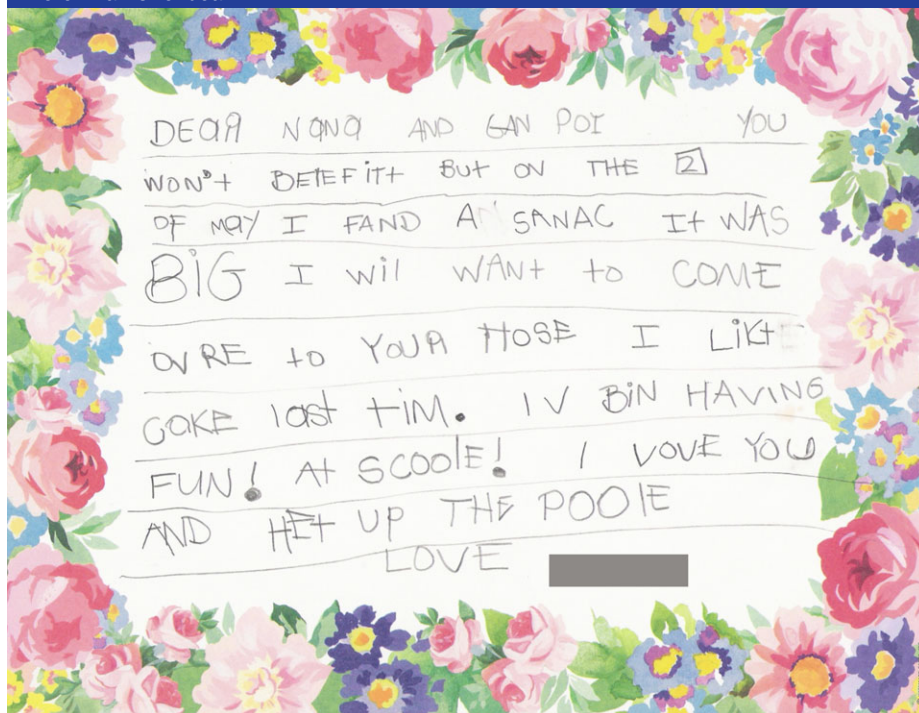 DEAR NANA AND GAN POY YOU
WON't BETEFitt But ON THE 2
OF MAY I FAND A SANAC It WAS
BIG I wil WANt to COME
OVRE to YOUR HOSE I LIKt
CAKE last tIM. IV BIN HAVING
FUN! At SCOOlE! I VOVE YOU
AND HEt UP THE POOlE
LOVE